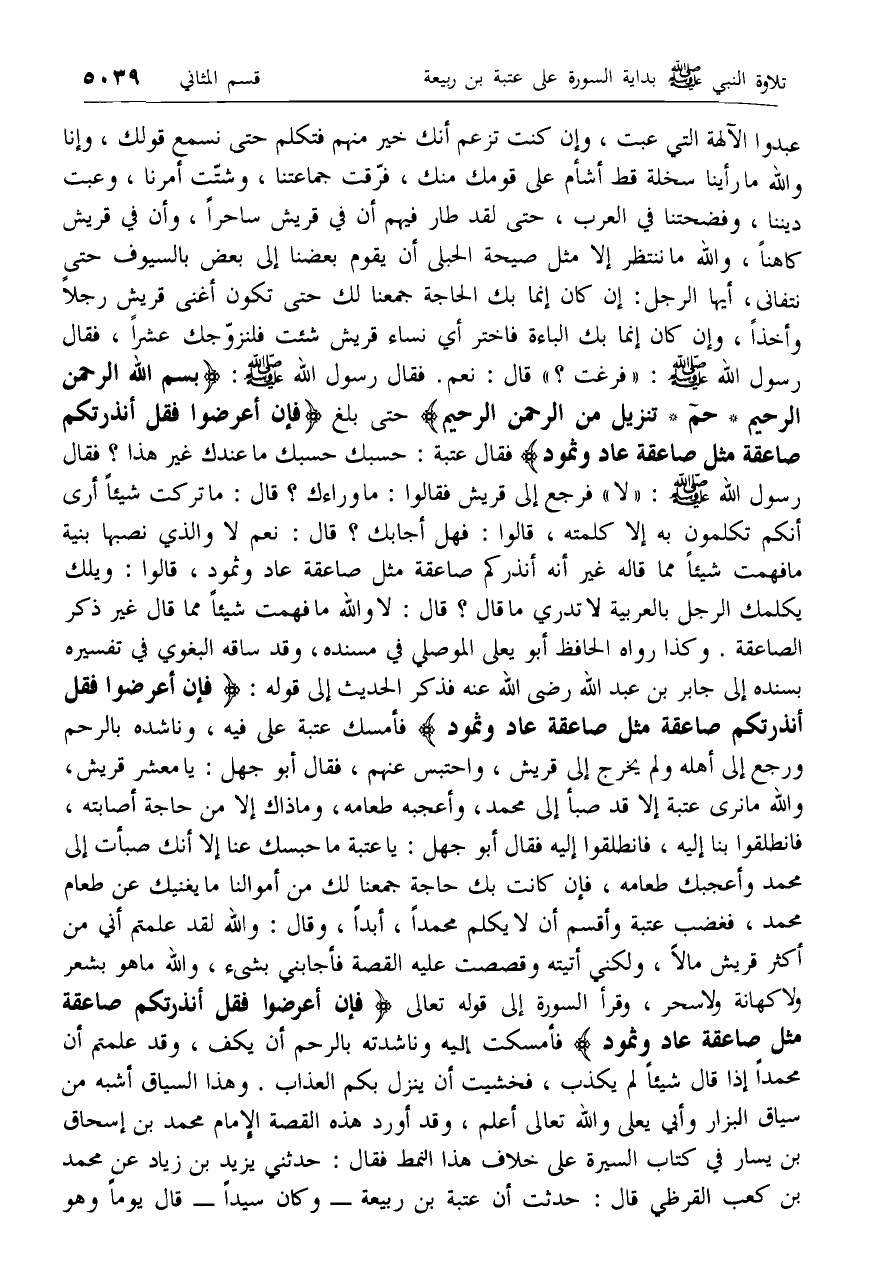 تلاوة النبي ﷺ بداية السورة على عتبة بن ربيعة قسم المثاني ٥٠٣٩
عبدوا الآلهة التي عبت ، وإن كنت تزعم أنك خير منهم فتكلم حتى نسمع قولك ، وإنا
والله ما رأينا سخلة قط أشأم على قومك منك ، فرّقت جماعتنا ، وشتّت أمرنا ، وعبت
ديننا ، وفضحتنا في العرب ، حتى لقد طار فيهم أن في قريش ساحراً ، وأن في قريش
كاهناً ، والله ما ننتظر إلا مثل صيحة الحبلى أن يقوم بعضنا إلى بعض بالسيوف حتى
نتفانى، أيها الرجل: إن كان إنما بك الحاجة جمعنا لك حتى تكون أغنى قريش رجلاً
وأخذاً ، وإن كان إنما بك الباءة فاختر أي نساء قريش شئت فلنزوّجك عشراً ، فقال
رسول الله ﷺ : «فرغت ؟» قال : نعم. فقال رسول الله ﷺ : ﴿بسم الله الرحمن
الرحيم * حمۤ * تنزيل من الرحمن الرحيم﴾ حتى بلغ ﴿فإن أعرضوا فقل أنذرتكم
صاعقة مثل صاعقة عاد وثمود﴾ فقال عتبة : حسبك حسبك ما عندك غير هذا ؟ فقال
رسول الله ﷺ : «لا» فرجع إلى قريش فقالوا : ما وراءك ؟ قال : ما تركت شيئاً أرى
أنكم تكلمون به إلا كلمته ، قالوا : فهل أجابك ؟ قال : نعم لا والذي نصبها بنية
ما فهمت شيئاً مما قاله غير أنه أنذركم صاعقة مثل صاعقة عاد وثمود ، قالوا : ويلك
يكلمك الرجل بالعربية لا تدري ما قال ؟ قال : لا والله ما فهمت شيئاً مما قال غير ذكر
الصاعقة . وكذا رواه الحافظ أبو يعلى الموصلي في مسنده، وقد ساقه البغوي في تفسيره
بسنده إلى جابر بن عبد الله رضى الله عنه فذكر الحديث إلى قوله : ﴿ فإن أعرضوا فقل
أنذرتكم صاعقة مثل صاعقة عاد وثمود ﴾ فأمسك عتبة على فيه ، وناشده بالرحم
ورجع إلى أهله ولم يخرج إلى قريش ، واحتبس عنهم ، فقال أبو جهل : يا معشر قريش،
والله ما نرى عتبة إلا قد صبأ إلى محمد، وأعجبه طعامه، وما ذاك إلا من حاجة أصابته ،
فانطلقوا بنا إليه ، فانطلقوا إليه فقال أبو جهل : يا عتبة ما حبسك عنا إلا أنك صبأت إلى
محمد وأعجبك طعامه ، فإن كانت بك حاجة جمعنا لك من أموالنا ما يغنيك عن طعام
محمد ، فغضب عتبة وأقسم أن لا يكلم محمداً ، أبداً ، وقال : والله لقد علمتم أني من
أكثر قريش مالاً ، ولكني أتيته وقصصت عليه القصة فأجابني بشىء ، والله ماهو بشعر
ولا كهانة ولا سحر ، وقرأ السورة إلى قوله تعالى ﴿ فإن أعرضوا فقل أنذرتكم صاعقة
مثل صاعقة عاد وثمود ﴾ فأمسكت إليه وناشدته بالرحم أن يكف ، وقد علمتم أن
محمداً إذا قال شيئاً لم يكذب ، فخشيت أن ينزل بكم العذاب . وهذا السياق أشبه من
سياق البزار وأبي يعلى والله تعالى أعلم ، وقد أورد هذه القصة الإمام محمد بن إسحاق
بن يسار في كتاب السيرة على خلاف هذا النمط فقال : حدثني يزيد بن زياد عن محمد
بن كعب القرظي قال : حدثت أن عتبة بن ربيعة ــ وكان سيداً ــ قال يوماً وهو